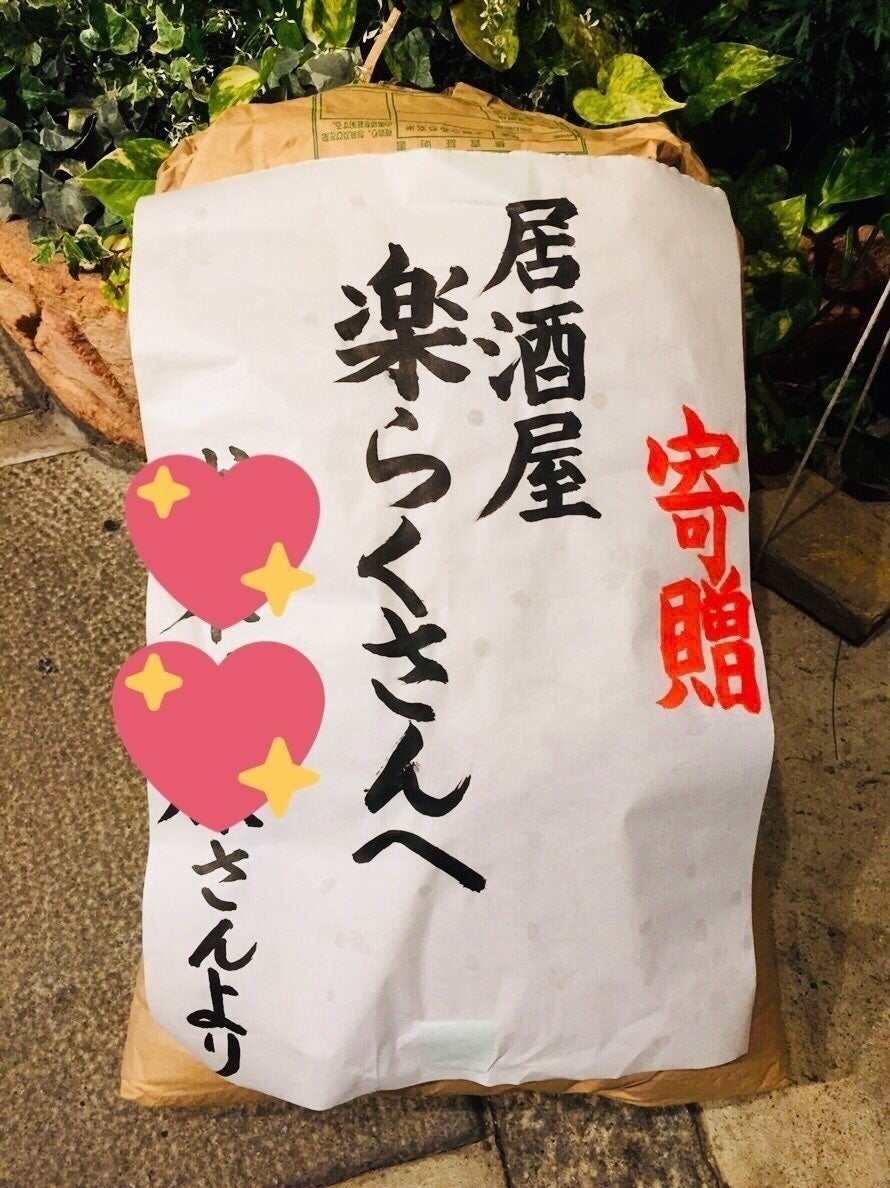 寄贈
居酒屋
楽らくさんへ
さんより